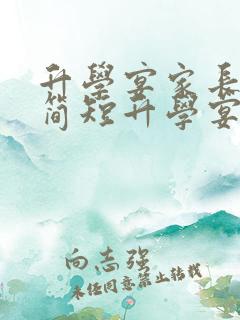 升學宴家長
簡短升學宴
向志强
未经同意禁止转载